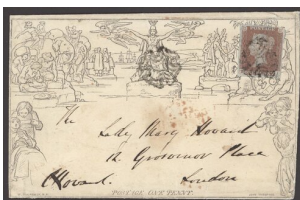 The
Lady Mary Howard
12 Grosvenor Place
CHoward. London
POSTAGE ONE PENNY.